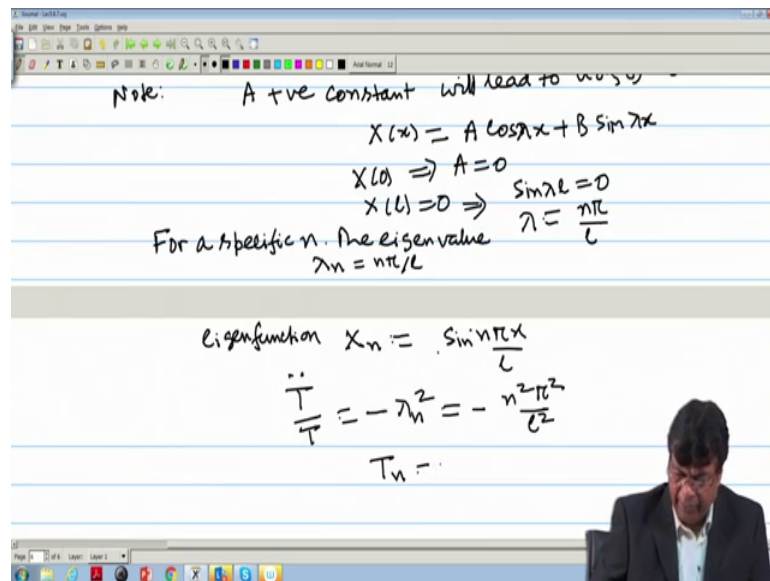 Xournal - Lec5.6.7.xoj
File Edit View Page Tools Options Help
Arial Normal 12
Note: A +ve constant will lead to
X(x) = A Cosλx + B Sin λx
X(0) ⇒ A = 0
X(l) = 0 ⇒ Sin λl = 0
λ = nπ/l
For a specific n. The eigenvalue
λn = nπ/l
eigenfunction Xn = Sin nπx/l
T̈/T = -λn² = - n²π²/l²
Tn =
Page 4 of 6 Layer: Layer 1